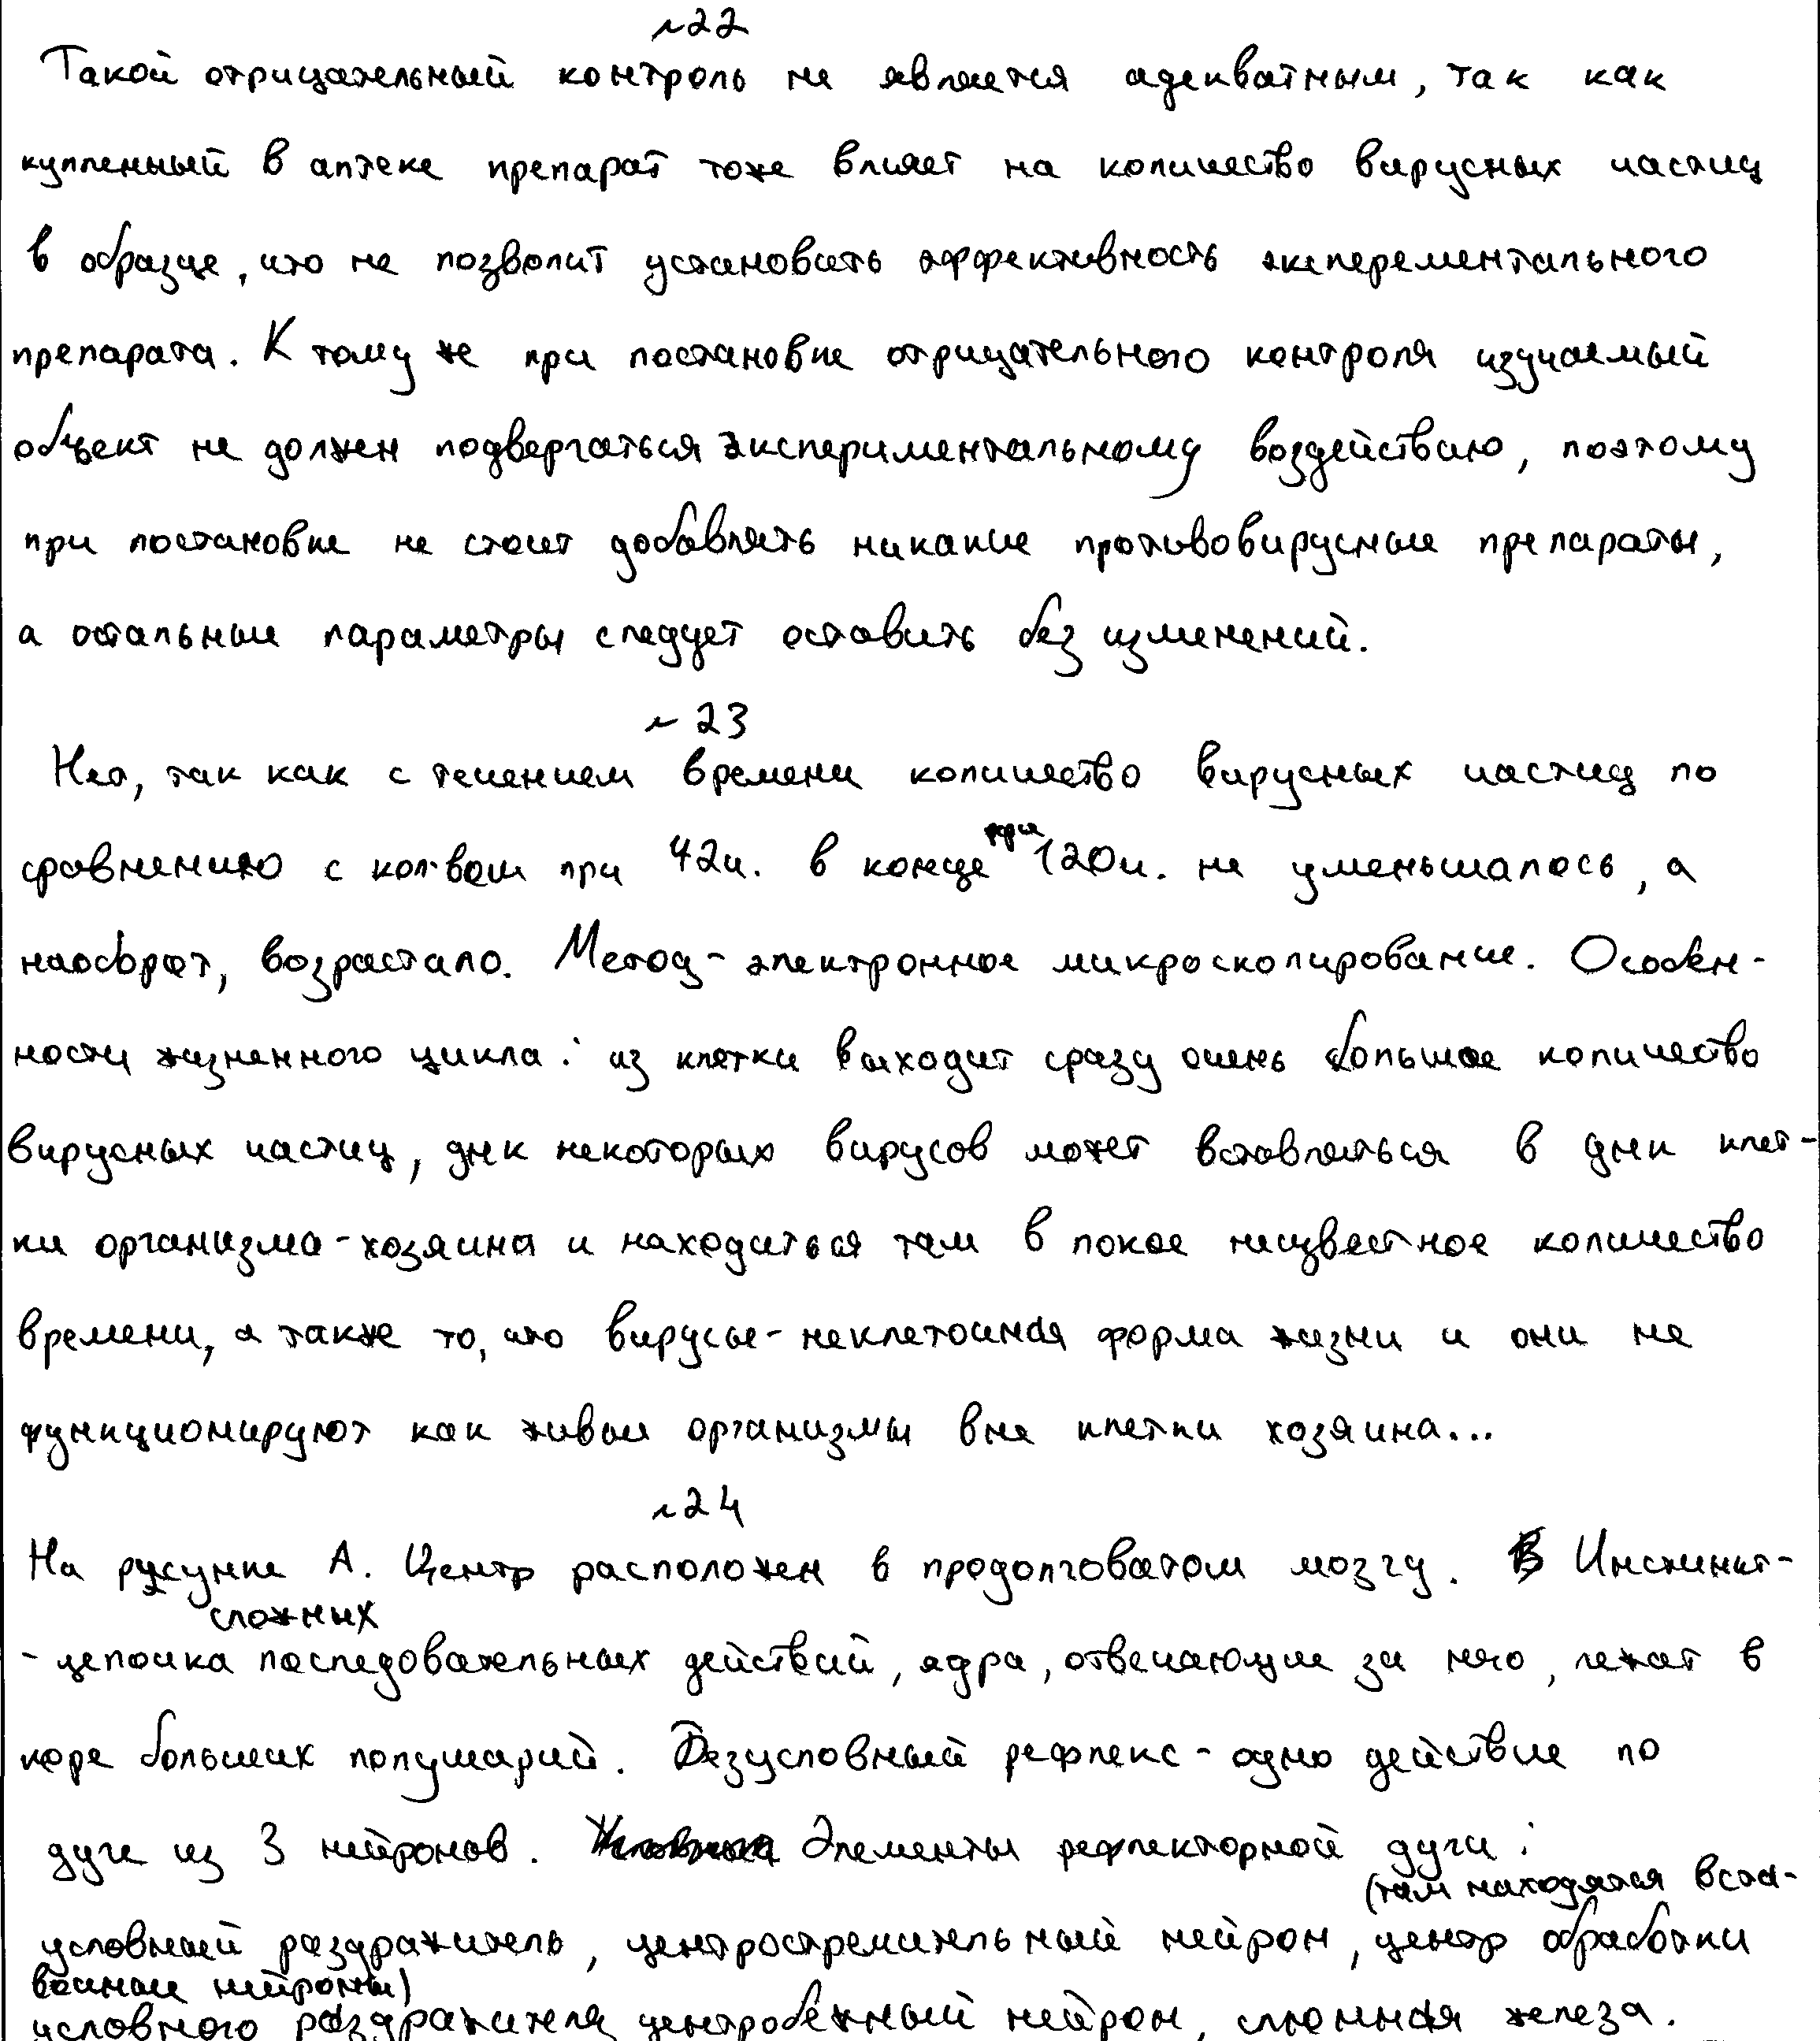 №22
Такой отрицательный контроль не является адекватным, так как
купленный в аптеке препарат тоже влияет на количество вирусных частиц
в образце, что не позволит установить эффективность эксперементального
препарата. К тому же при постановке отрицательного контроля изучаемый
объект не должен подвергаться экспериментальному воздействию, поэтому
при постановке не стоит добавлять никакие противовирусные препараты,
а остальные параметры следует оставить без изменений.
№23
Нет, так как с течением времени количество вирусных частиц по
сравнению с кол-вом при 42ч. в конце при 120ч. не уменьшалось, а
наоборот, возрастало. Метод - электронное микроскопирование. Особен-
ности жизненного цикла: из клетки выходит сразу очень большое количество
вирусных частиц, днк некоторых вирусов может вставляться в днк клет-
ки организма-хозяина и находиться там в покое неизвестное количество
времени, а также то, что вирусы - неклеточная форма жизни и они не
функционируют как живые организмы вне клетки хозяина...
№24
На рисунке А. Центр расположен в продолговатом мозгу. Инстинкт-
сложных
- цепочка последовательных действий, ядра, отвечающие за него, лежат в
коре больших полушарий. Безусловный рефлекс - одно действие по
дуге из 3 нейронов. Элементы рефлекторной дуги:
(там находятся вста-
условный раздражитель, центростремительный нейрон, центр обработки
вочные нейроны)
условного раздражителя, центробежный нейрон, слюнная железа.